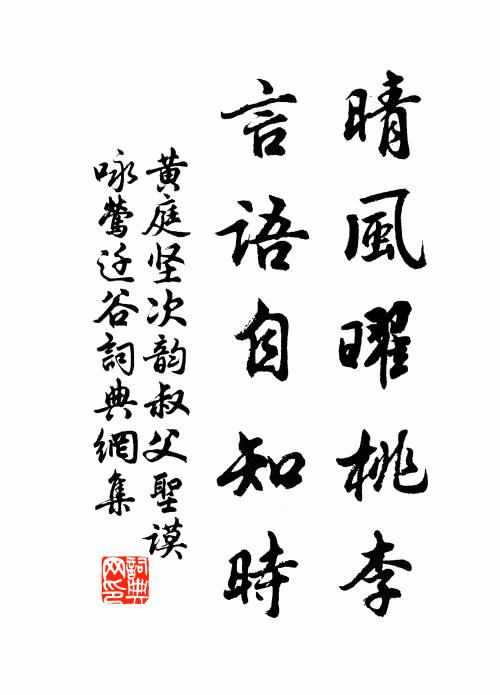 晴風曜桃李
言語自知時
黄庭坚次韵叔父聖謨
咏鶯迁谷詞典網集
詞典网印